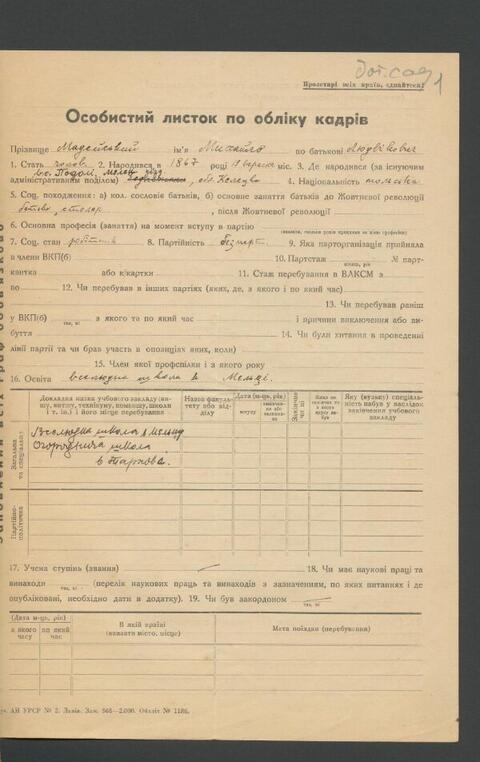 бот. сад 1
Пролетарі всіх країн, єднайтеся!
Особистий листок по обліку кадрів
Прізвище Мадейський ім'я Михайло по батькові Людвікович
1. Стать чолов. 2. Народився в 1867 році 19 вересня міс. 3. Де народився (за існуючим
адміністративним поділом) обл. Келецко 4. Національність польська
5. Соц. походження: а) кол. сословіє батьків, б) основне заняття батьків до Жовтневої революції
батько, столяр, після Жовтневої революції
6. Основна професія (заняття) на момент вступу в партію
7. Соц. стан робітник 8. Партійність безпарт. 9. Яка парторганізація прийняла
в члени ВКП(б) 10. Партстаж № парт-
квитка або к/картки 11. Стаж перебування в ВЛКСМ з
по 12. Чи перебував в інших партіях (яких, де, з якого і по який час)
13. Чи перебував раніш
у ВКП(б) з якого та по який час і причини виключення або ви-
буття 14. Чи були хитання в проведенні
лінії партії та чи брав участь в опозиціях яких, коли)
15. Член якої профспілки і з якого року
16. Освіта вселюдна школа в Мельці.
Докладна назва учбового закладу (ви-
шу, витшу, технікуму, комвишу, школи
і т. ін.) і його місце перебування
Назва факуль-
тету або від-
ділу
Дата (м-ць, рік)
вступу
Яку (вузьку) спеціаль-
ність набув у наслідок
закінчення учбового
закладу
Загальна
та спеціальна
Вселюдна школа в Мельці
Огороднича школа
в Тарнові.
Партійно-
політична
17. Учена ступінь (звання) 18. Чи має наукові праці та
винаходи (перелік наукових праць та винаходів з зазначенням, по яких питаннях і де
опубліковані, необхідно дати в додатку). 19. Чи був закордоном
(Дата м-ць, рік)
з якого часу
по який час
В якій країні
(вказати місто, місце)
Мета поїздки (перебування)
АН УРСР № 2. Львів. Зам. 568—2.000. Обліт № 1186.